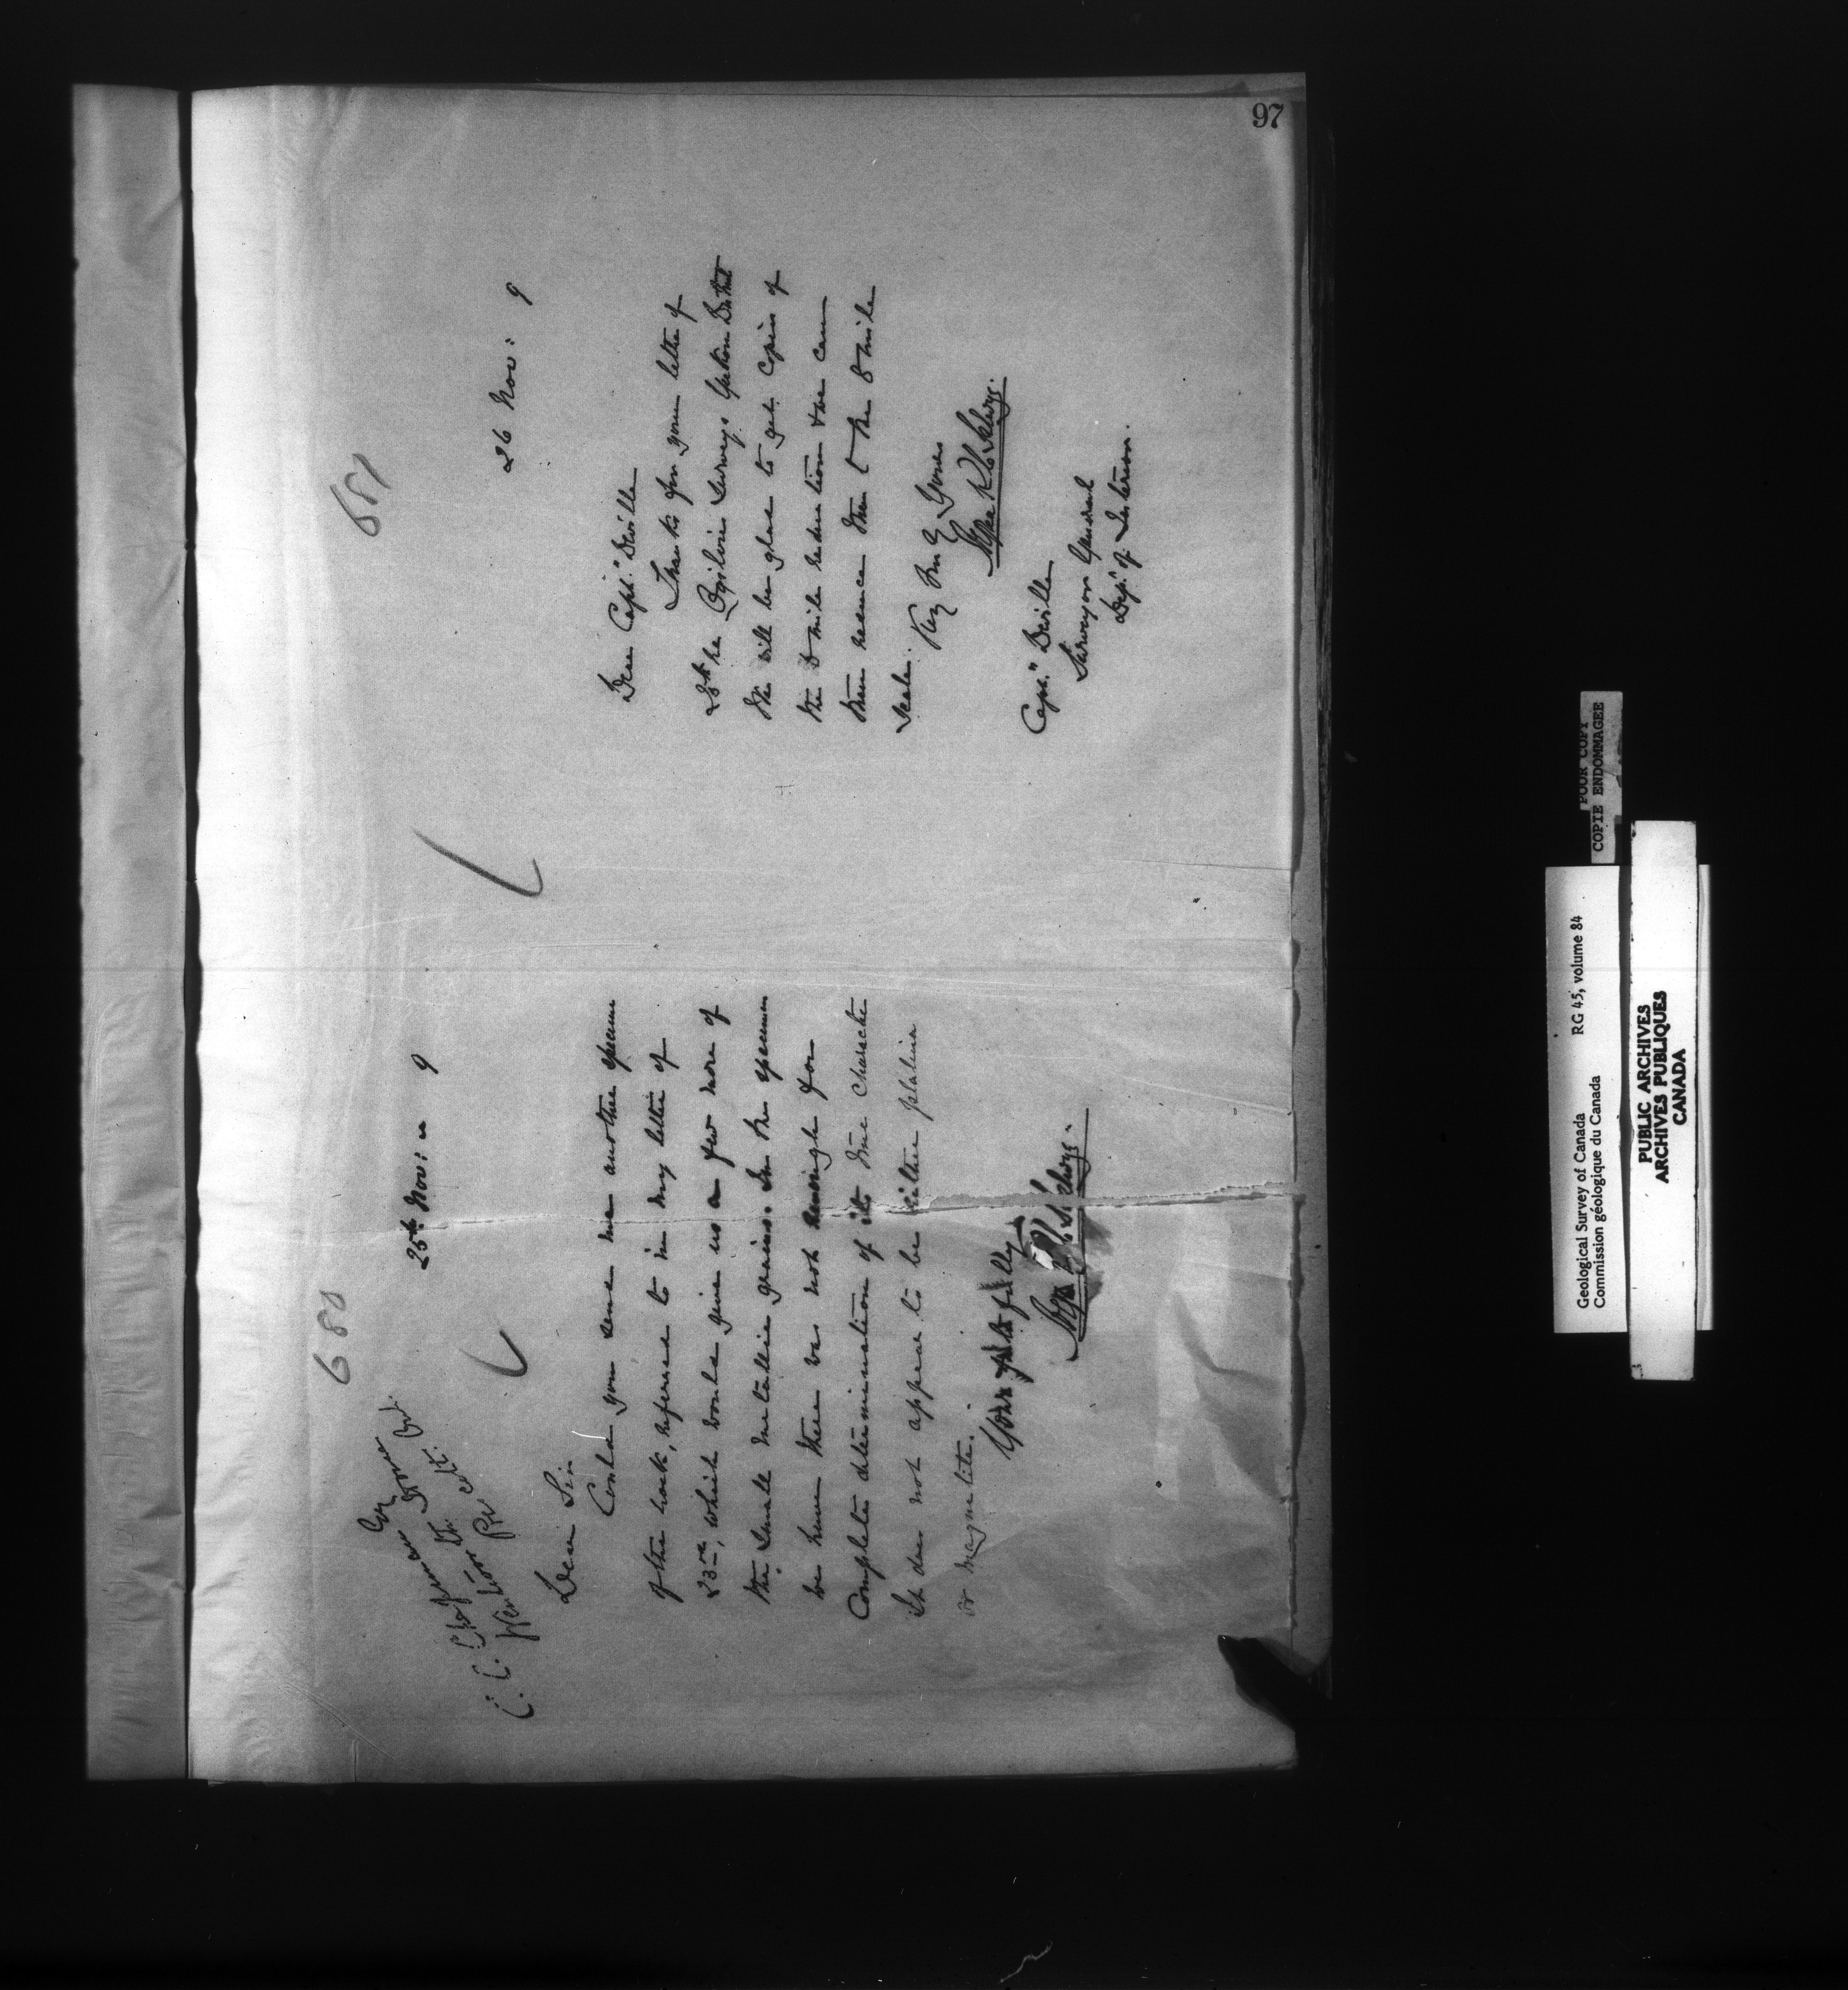 97
680
25th Nov: 9
C. C. Chipman
Dear Sir
Could you send me another specimen
of the rock, referred to in my letter of
23rd, which would give us a few more of
the small metallic grains. In the specimen
we have there was not enough for
complete determination of its true character
It does not appear to be either platina
or magnetite.
Yours faithfully
681
26 Nov: 9
Dear Capt. Deville
Thanks for your letter of
25th re Ogilvie's Surveys Yukon District
We will be glad to get copies of
the 8 mile reduction & we can
then reduce them to the 8 mile
scale.
Very truly Yours
Capt. Deville
Surveyor General
Dept. of Interior.
POOR COPY
COPIE ENDOMMAGEE
Geological Survey of Canada RG 45, volume 84
Commission géologique du Canada
PUBLIC ARCHIVES
ARCHIVES PUBLIQUES
CANADA